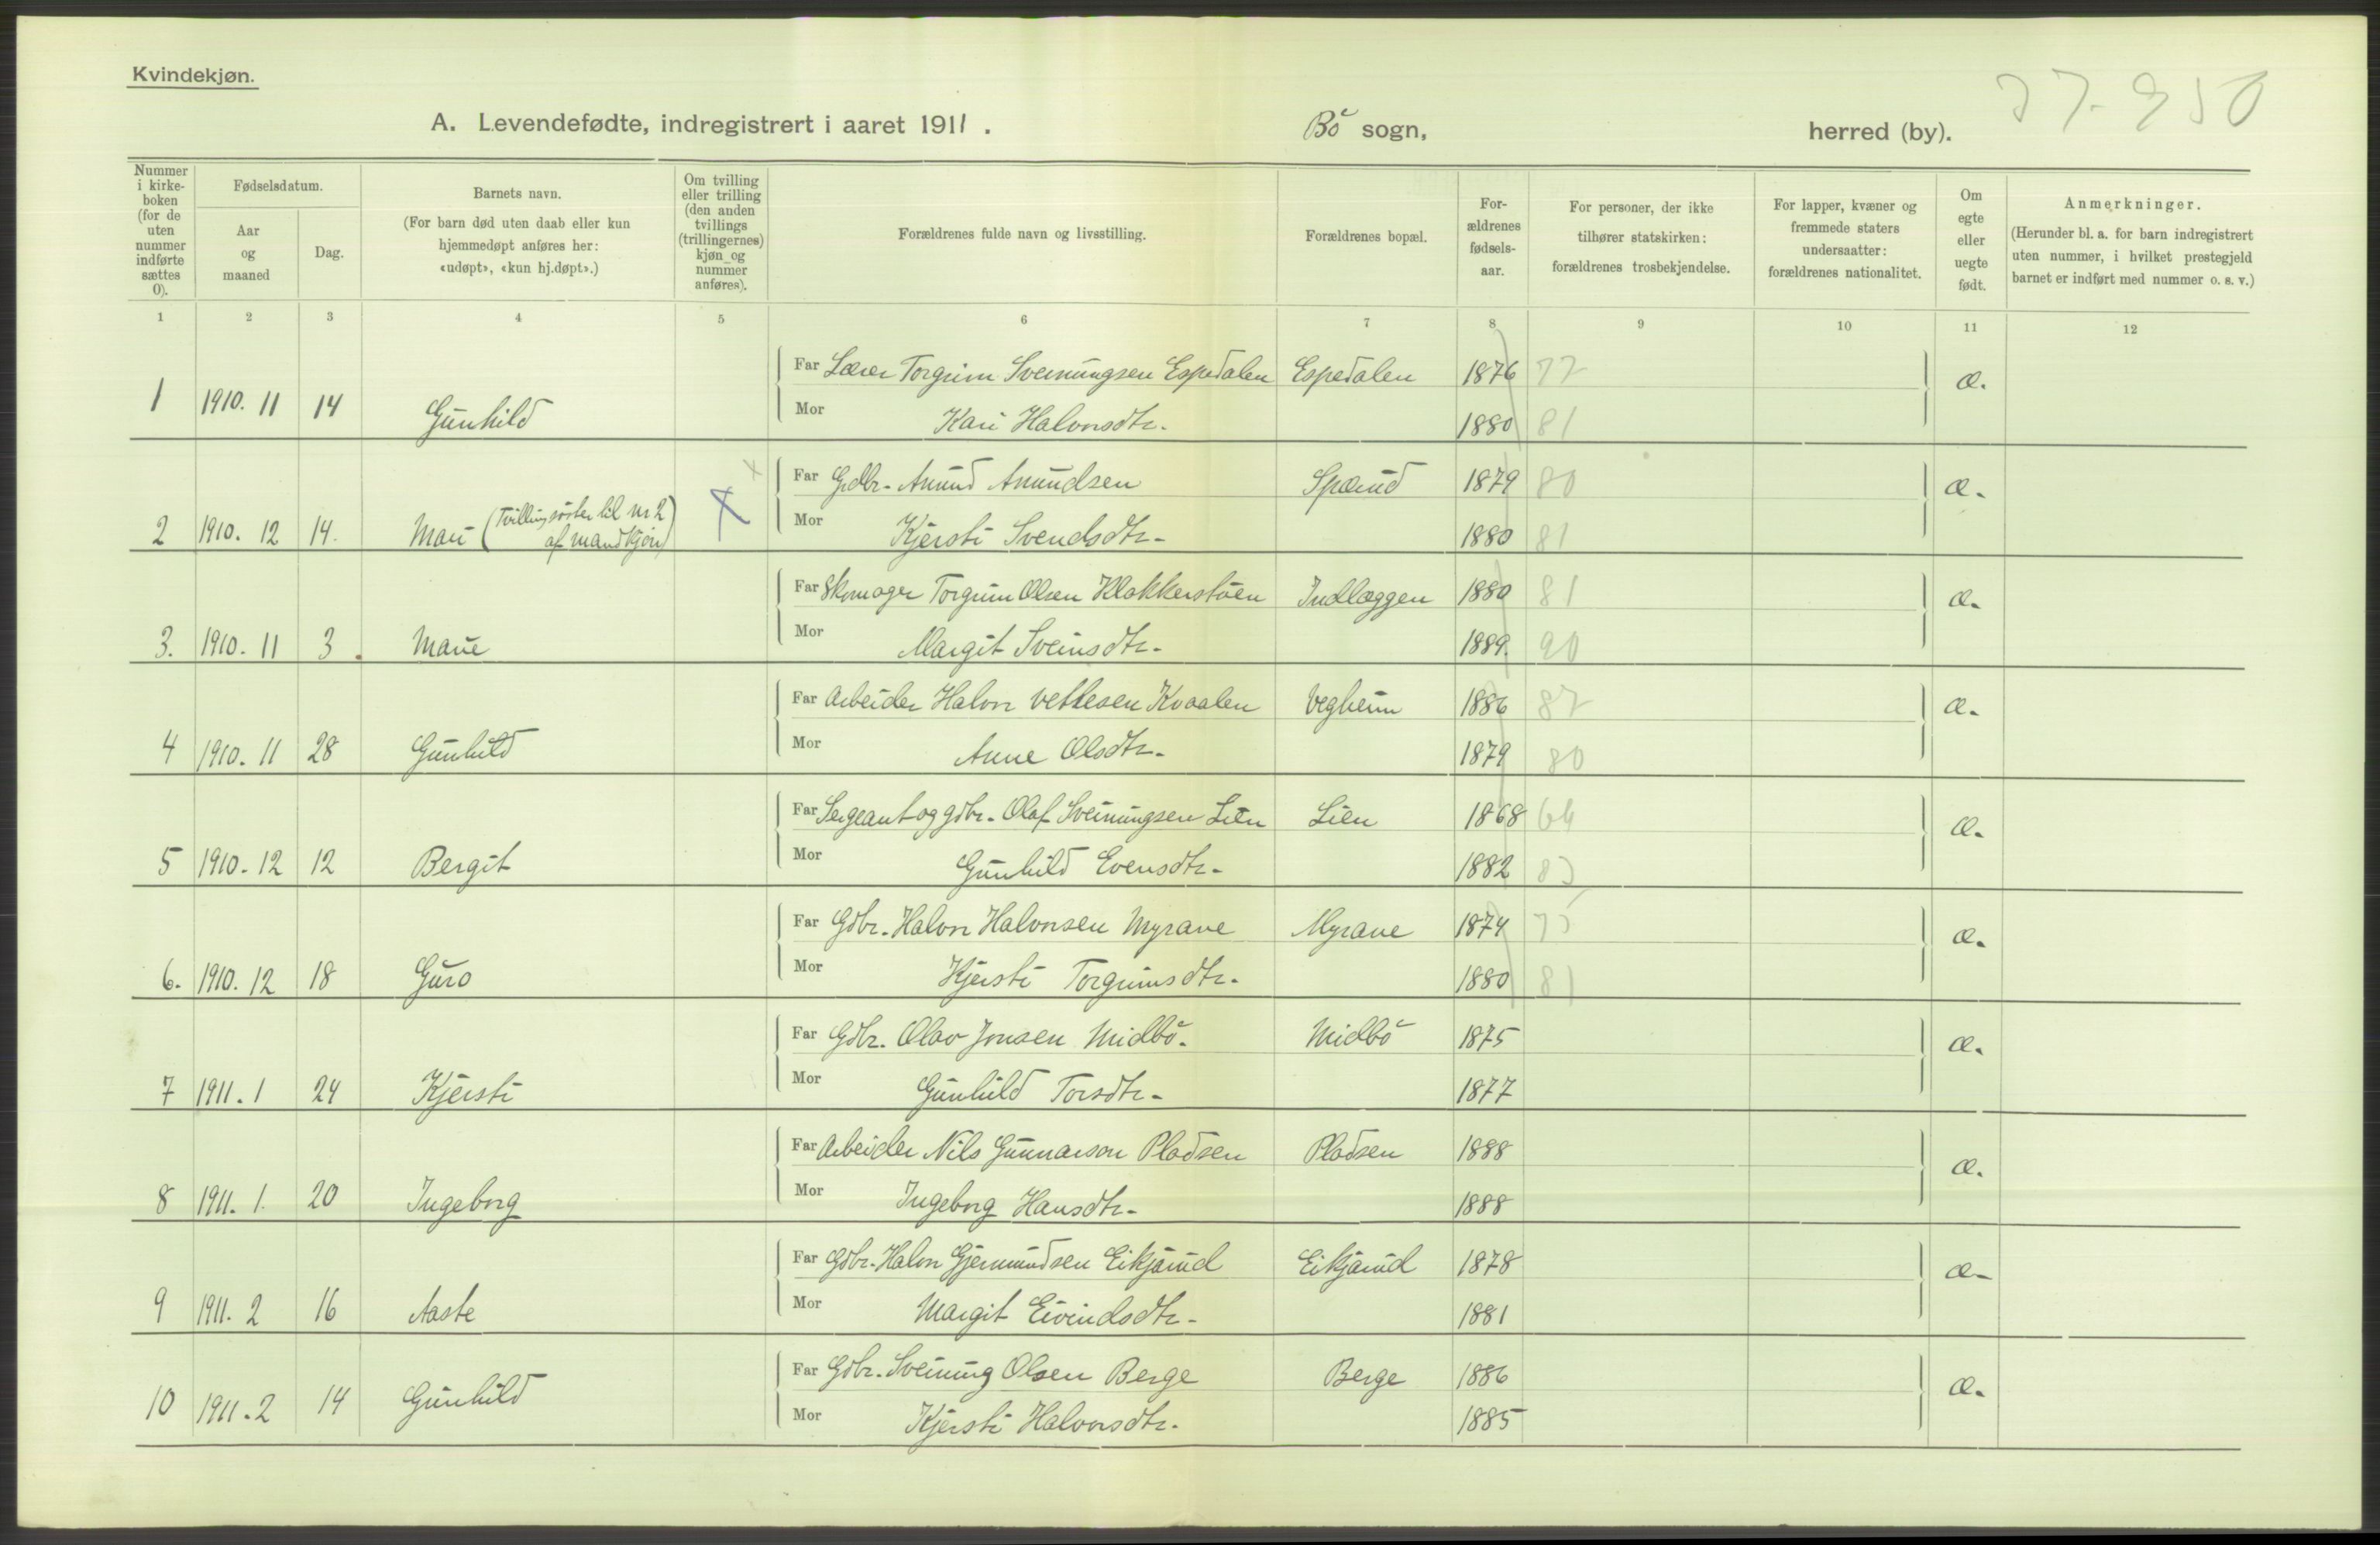 Kvindekjøn.
A. Levendefødte, indregistrert i aaret 1911. Bö sogn, herred (by).
Nummer i kirke-boken (for de uten nummer indførte sættes 0).
Fødselsdatum.
Aar og maaned
Dag.
Barnets navn.
(For barn død uten daab eller kun hjemmedøpt anføres her: «udøpt», «kun hj.døpt».)
Om tvilling eller trilling (den anden tvillings (trillingernes) kjøn og nummer anføres).
Forældrenes fulde navn og livsstilling.
Forældrenes bopæl.
For-ældrenes fødsels-aar.
For personer, der ikke tilhører statskirken: forældrenes trosbekjendelse.
For lapper, kvæner og fremmede staters undersaatter: forældrenes nationalitet.
Om egte eller uegte født.
Anmerkninger.
(Herunder bl. a. for barn indregistrert uten nummer, i hvilket prestegjeld barnet er indført med nummer o. s. v.)
1 2 3 4 5 6 7 8 9 10 11 12
Far Lærer Torgrim Sveinungsen Espedalen Espedalen 1876 77
1 1910. 11 14 Gunhild æ.
Mor Kari Halvorsdtr. 1880 81
Far Gdbr. Anund Anundsen Spærud 1879 80
2 1910. 12 14. Mari (Tvillingsøster til nr 2 af mandkjøn) x æ.
Mor Kjersti Svendsdtr. 1880 81
Far Skomager Torgrim Olsen Klokkerstøen Indlæggen 1880 81
3. 1910. 11 3. Marie æ.
Mor Margit Sveinsdtr. 1889. 90
Far Arbeider Halvor Vetlesen Kvaalen Vegheim 1886 87
4 1910. 11 28 Gunhild æ.
Mor Anne Olsdtr. 1879 80
Far Sergeant og gdbr. Olaf Sveinungsen Lien Lien 1868 69
5 1910. 12 12 Bergit æ.
Mor Gunhild Evensdtr. 1882 83
Far Gdbr. Halvor Halvorsen Myrane Myrane 1874 75
6. 1910. 12 18 Guro æ.
Mor Kjersti Torgrimsdtr. 1880 81
Far Gdbr. Olav Jonsen Midbö. Midbö 1875
7 1911. 1 24 Kjersti æ.
Mor Gunhild Torsdtr. 1877
Far Arbeider Nils Gunnarson Pladsen Pladsen 1888
8 1911. 1. 20 Ingeborg æ.
Mor Ingeborg Hansdtr. 1888
Far Gdbr. Halvor Gjermundsen Eikjarud Eikjarud 1878
9 1911. 2 16 Aaste æ.
Mor Margit Eivindsdtr. 1881
Far Gdbr. Sveinung Olsen Berge Berge 1886
10 1911. 2 14 Gunhild æ.
Mor Kjersti Halvorsdtr. 1885